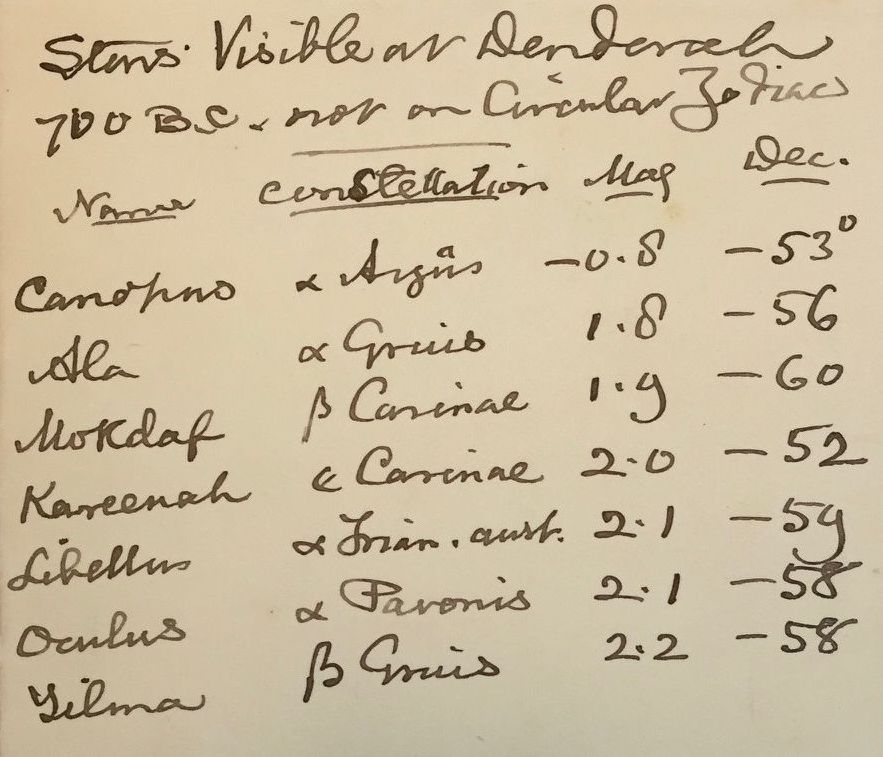 Stars Visible at Denderah
700 B.C. not on Circular Zodiac
Name Constellation Mag Dec.
Canopus α Argûs -0.8 -53°
Ala α Gruis 1.8 -56
Mokdaf β Carinae 1.9 -60
Kareenah ε Carinae 2.0 -52
Libellus α Trian. aust. 2.1 -59
Oculus α Pavonis 2.1 -58
β Gruis 2.2 -58